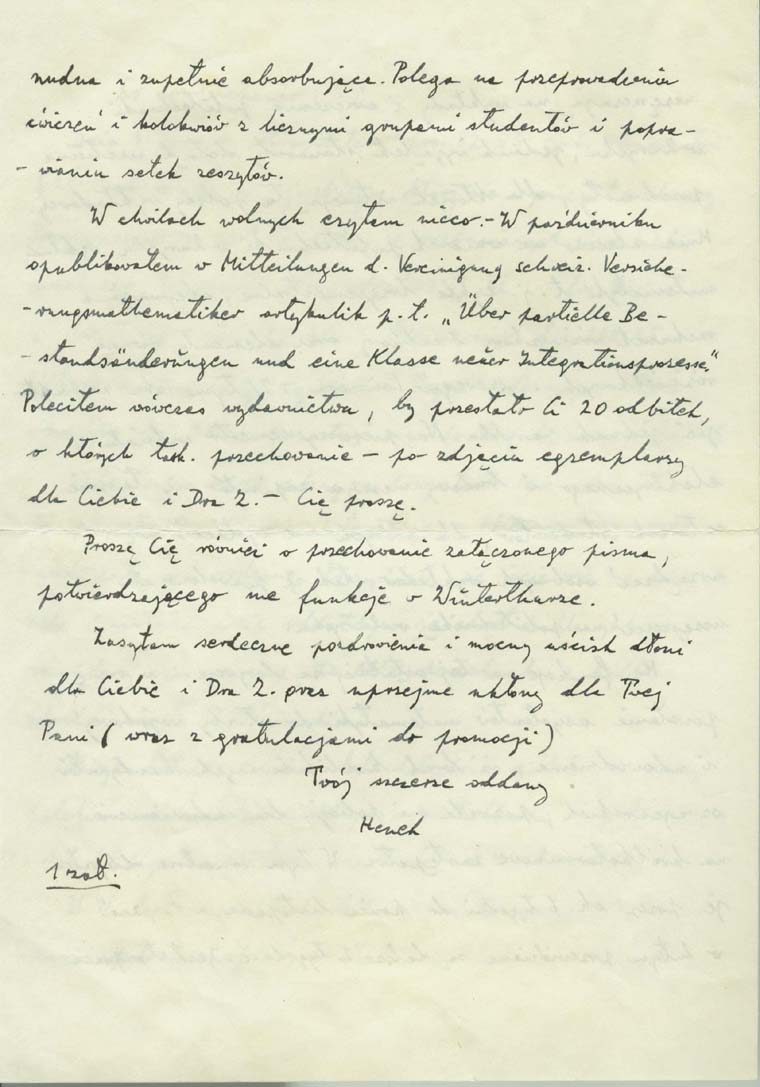 nudna i zupełnie absorbująca. Polega na przeprowadzeniu
ćwiczeń i kolokwiów z licznymi grupami studentów i popra-
- wianiu setek zeszytów.
W chwilach wolnych czytam nieco. - W październiku
opublikowałem w Mitteilungen d. Vereinigung schweiz. Versiche-
- rungsmathematiker artykulik p. t. „Über partielle Be-
- standsänderŭngen und eine Klasse neŭer Integrationsprozesse."
Poleciłem wówczas wydawnictwu, by przesłało Ci 20 odbitek,
o których łask. przechowanie - po zdjęciu egzemplarzy
dla Ciebie i Dra Z. - Cię proszę.
Proszę Cię również o przechowanie załączonego pisma,
potwierdzającego me funkcje w Winterthurze.
Zasyłam serdeczne pozdrowienia i mocny uścisk dłoni
dla Ciebie i Dra Z. oraz uprzejme ukłony dla Twej
Pani (wraz z gratulacjami do promocji)
Twój szczerze oddany
Henek
1 zał.